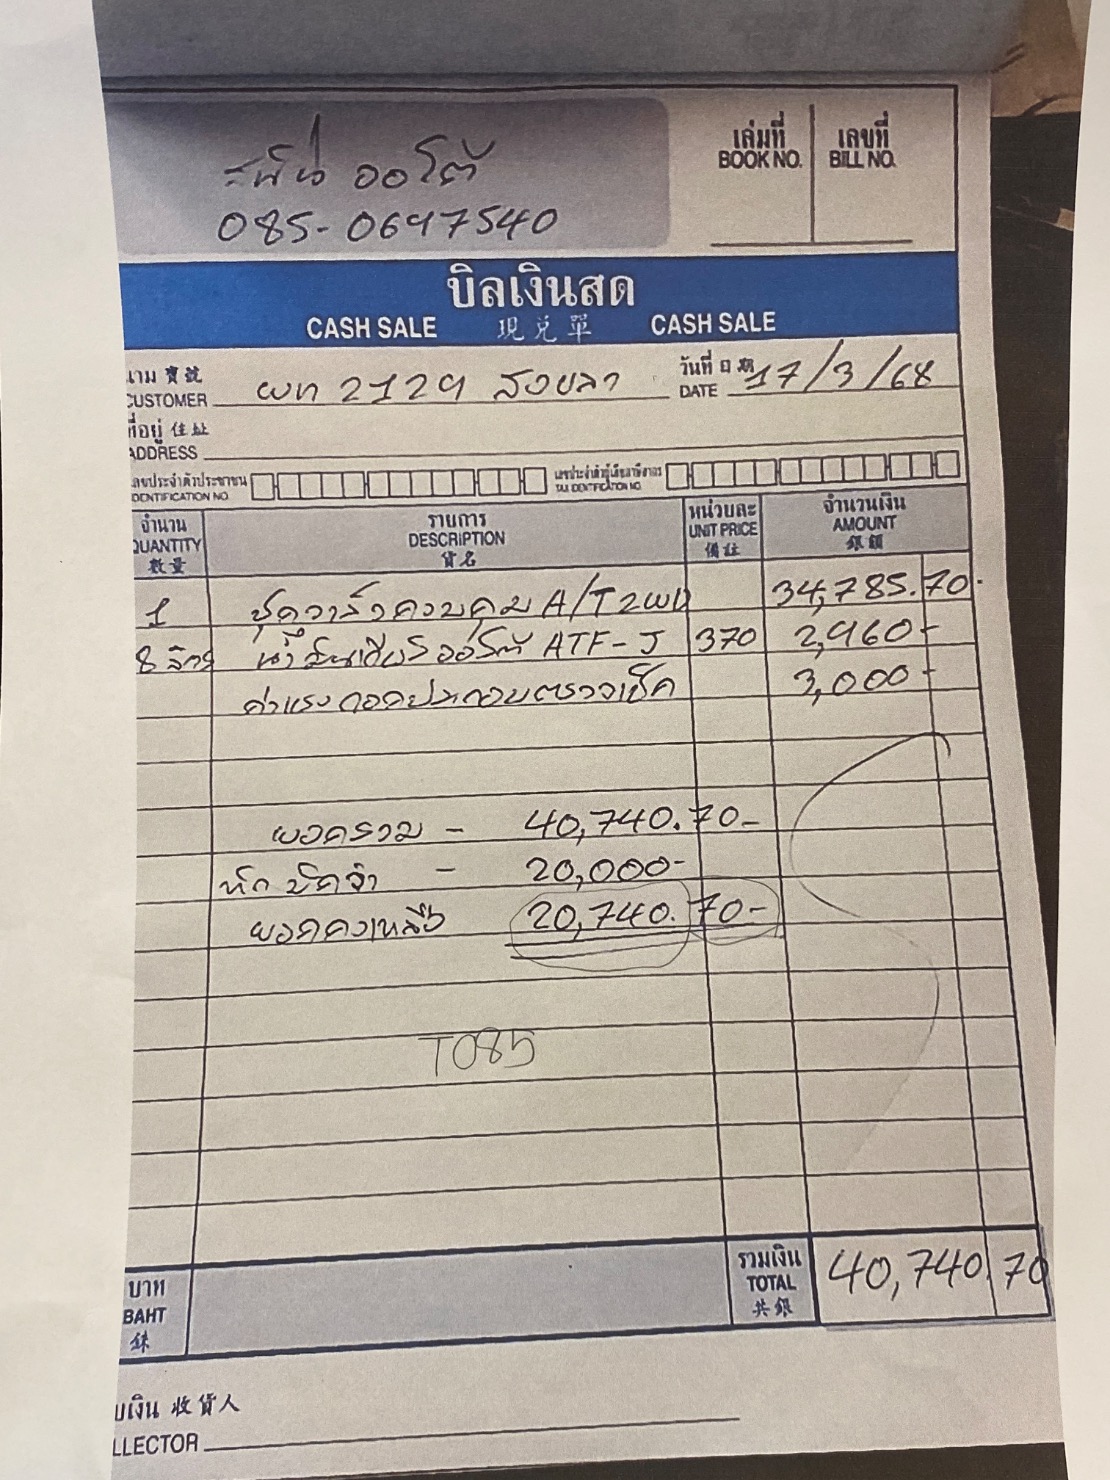 เล่มที่ เลขที่
BOOK NO. BILL NO.
ออโต้
085-0697540
บิลเงินสด
CASH SALE 現兑單 CASH SALE
นาม 寶號 วันที่ 日期
CUSTOMER ผท 2129 สงขลา DATE 17/3/68
ที่อยู่ 住址
ADDRESS
เลขประจำตัวประชาชน เลขประจำตัวผู้เสียภาษีอากร
IDENTIFICATION NO. TAX IDENTIFICATION NO.
จำนวน รายการ หน่วยละ จำนวนเงิน
QUANTITY DESCRIPTION UNIT PRICE AMOUNT
數量 貨名 備註 銀額
1 ชุดวาล์วควบคุม A/T 2WD 34,785.70-
8 ลิตร น้ำมันเกียร์ออโต้ ATF-J 370 2,960-
ค่าแรงถอดประกอบตรวจเช็ค 3,000-
ยอดรวม - 40,740.70-
หักมัดจำ - 20,000-
ยอดคงเหลือ 20,740.70-
T085
บาท รวมเงิน
BAHT TOTAL 40,740.70
銖 共銀
บเงิน 收貨人
LLECTOR